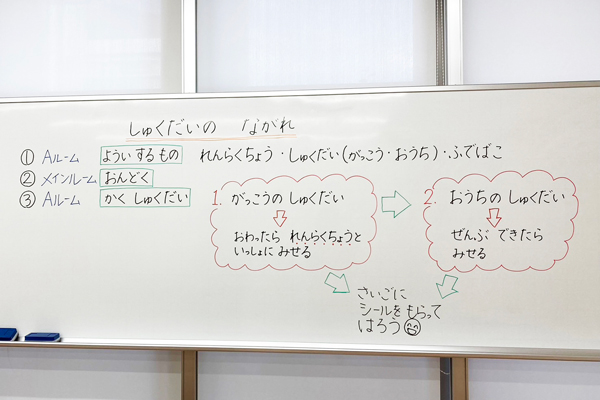 しゅくだいの ながれ
① Aルーム よういするもの れんらくちょう・しゅくだい(がっこう・おうち)・ふでばこ
② メインルーム おんどく
③ Aルーム かく しゅくだい
1. がっこうの しゅくだい
おわったら れんらくちょうと
いっしょに みせる
2. おうちの しゅくだい
ぜんぶ できたら
みせる
さいごに
シールをもらって
はろう